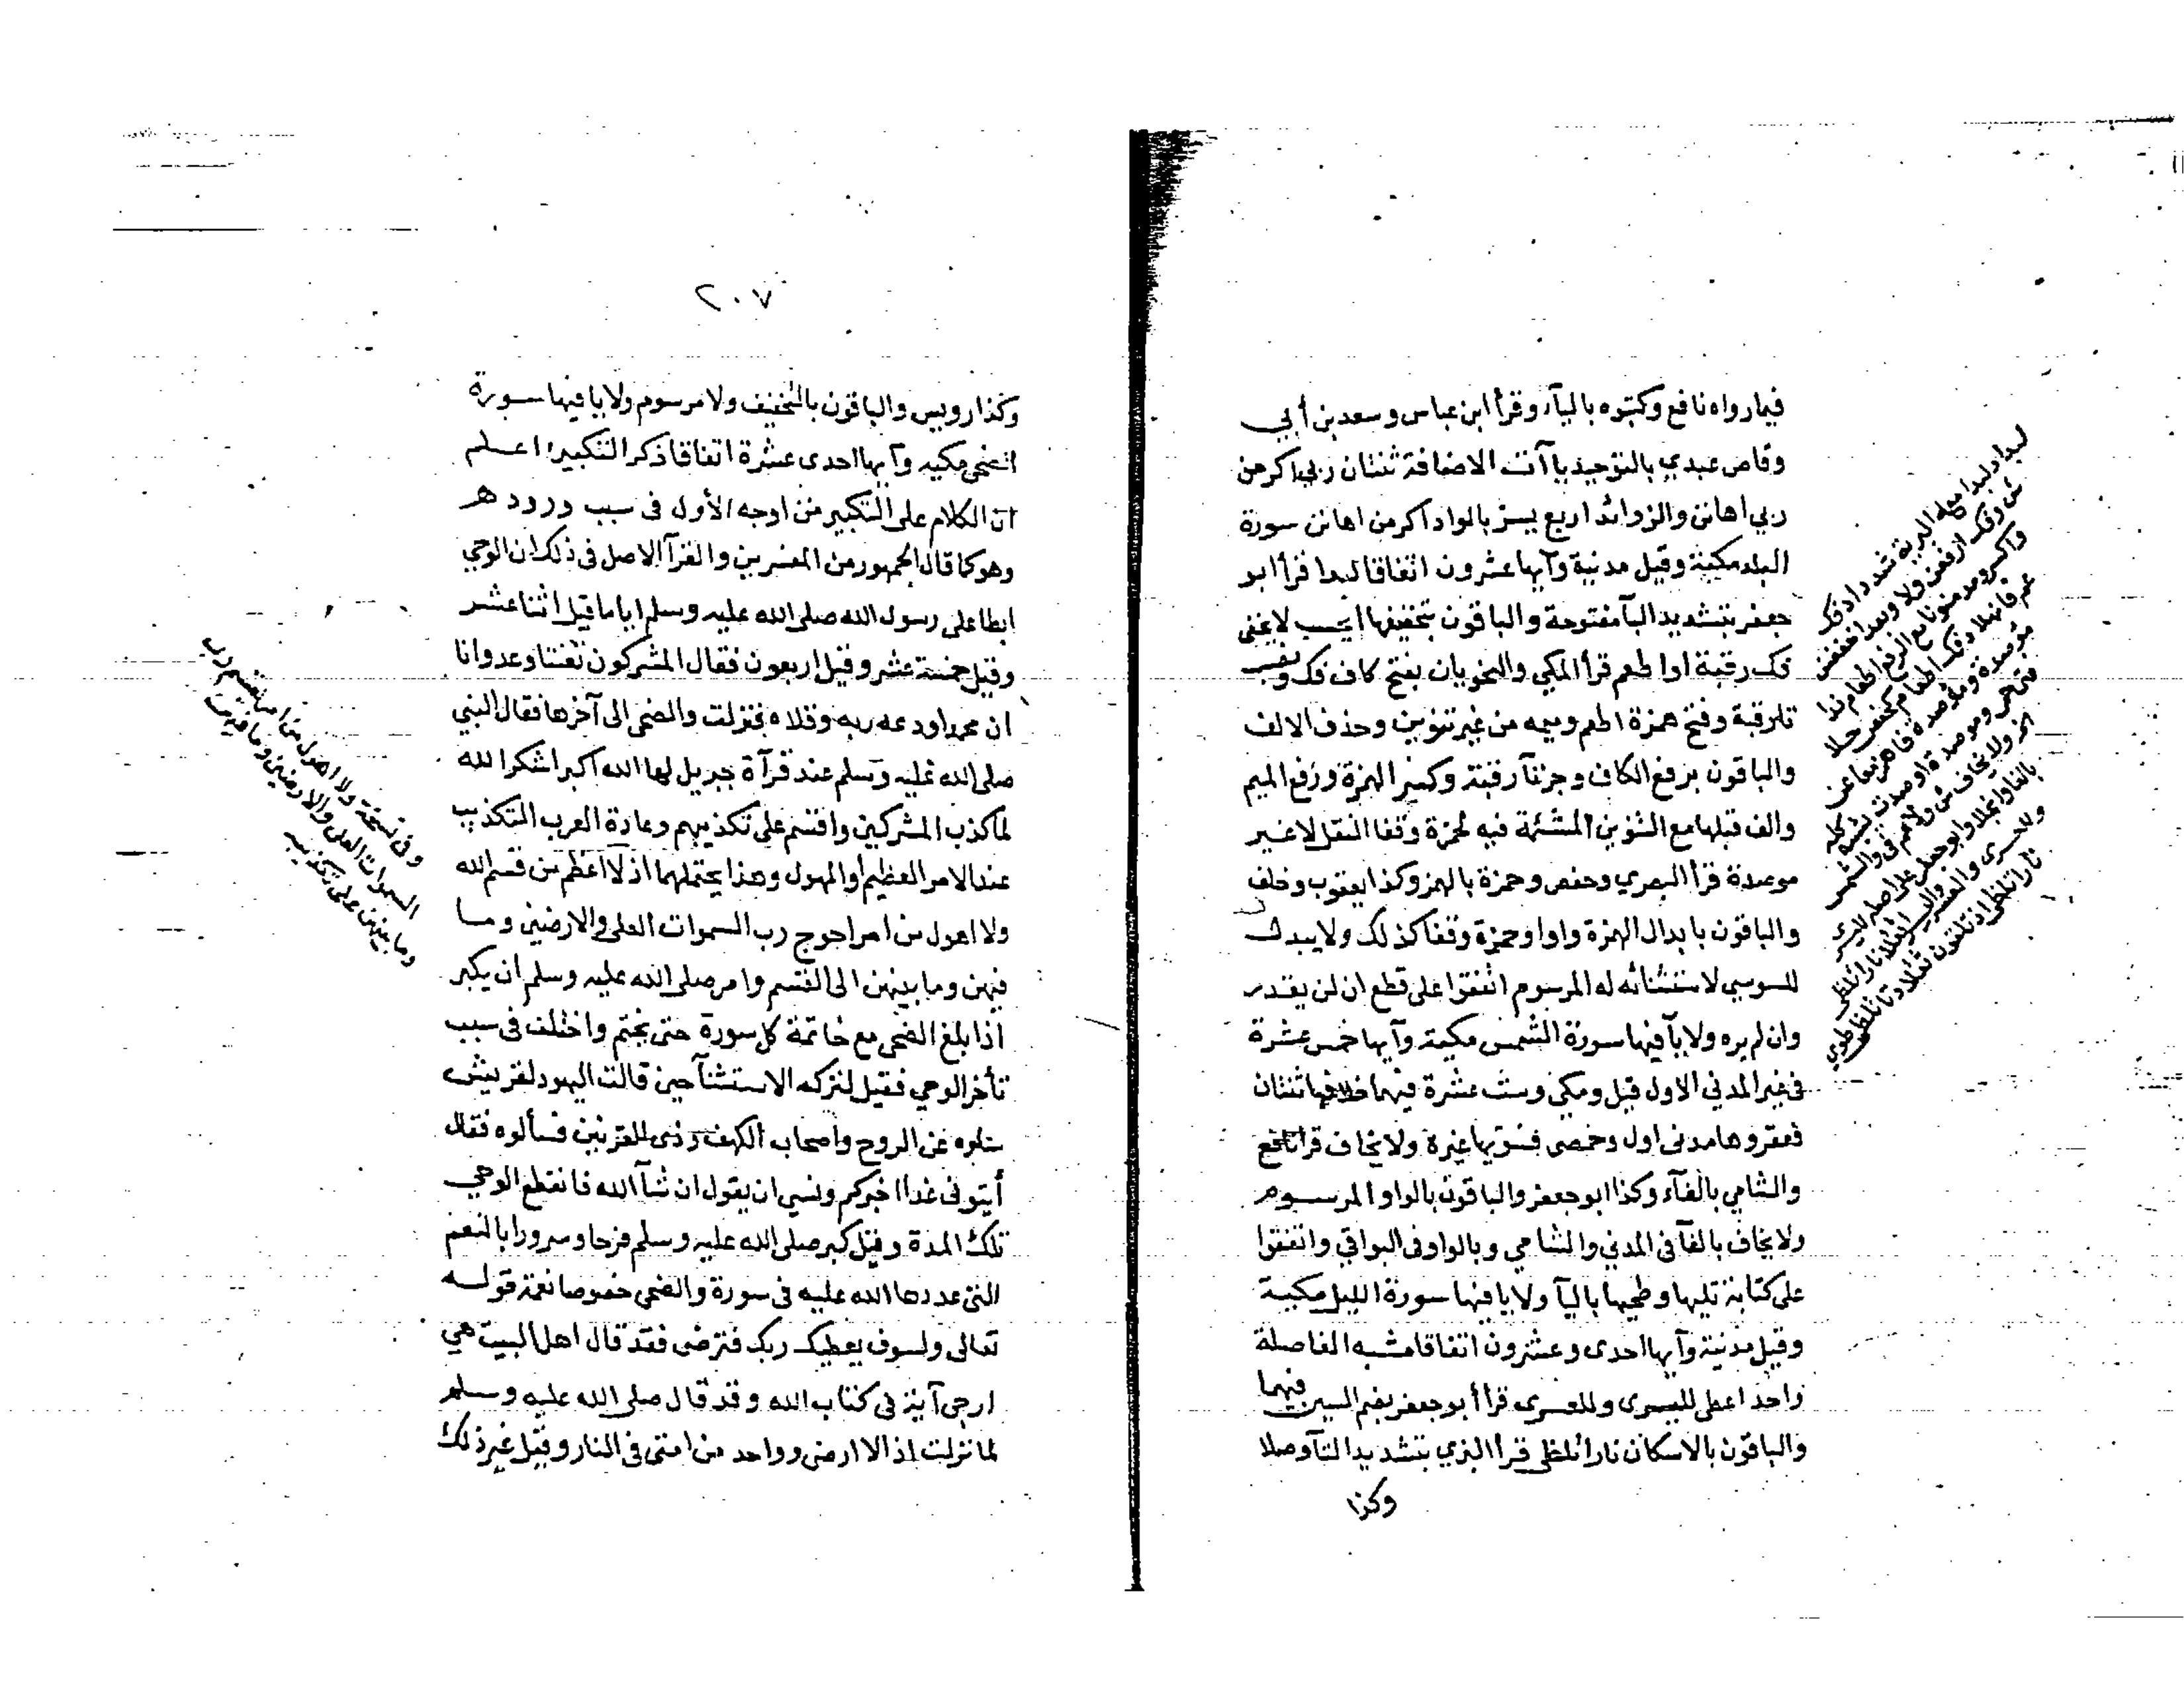 فيما رواه نافع وكتبوه بالياء وقرأ ابن عباس وسعد بن أبي
وقاص عبدي بالتوحيد يا آت الاضافة ثنتان ربي اكرمن
ربي اهانن والزوائد اربع يسر بالواد اكرمن اهانن سورة
البلد مكية وقيل مدنية وآيها عشرون اتفاقا لبدا قرأ ابو
جعفر بتشديد البآ مفتوحة والباقون بتخفيفها ايحسب لا يخفى
فك رقبة او اطعم قرأ المكي والنحويان بفتح كاف فك ونصب
تلو رقبة وفتح همزة اطعم وميمه من غير تنوين وحذف الالف
والباقون برفع الكاف وجر تآ رقبة وكسر الهمزة ورفع الميم
والف قبلها مع التنوين المشئمة فيه لحمزة وقفا النقل لا غير
موصدة قرأ البصري وحفص وحمزة بالهمز وكذا يعقوب وخلف
والباقون بابدال الهمزة واوا وحمزة وقفا كذلك ولا يبدل
للسوسي لاستثنائه له المرسوم اتفقوا على قطع ان لن يقدر
وان لم يره ولا يآ فيها سورة الشمس مكية وآيها خمس عشرة
في غير المدني الاول قيل ومكي وست عشرة فيهما خلافها ثنتان
فعقروها مدني اول وحمصي فسويها غيره ولا يخاف قرا نافع
والشامي بالفآء وكذا ابو جعفر والباقون بالواو المرسوم
ولا يخاف بالفآ في المدني والشامي وبالواو في البواقي واتفقوا
على كتابة تليها وطحيها باليآ ولا يا فيها سورة الليل مكية
وقيل مدنية وآيها احدى وعشرون اتفاقا مشبه الفاصلة
واحد اعطى لليسرى وللعسرى قرأ أبو جعفر بضم السين فيهما
والباقون بالاسكان نارا تلظى قرأ البزي بتشديد التآ وصلا
وكذا
٢٠٧
وكذا رويس والباقون بالتخفيف ولا مرسوم ولا يا فيها سورة
الضحى مكيه وآيها احدى عشرة اتفاقا ذكر التكبير اعلم
ان الكلام على التكبير من اوجه الأول في سبب وروده
وهو كما قال الجمهور من المفسرين والقرآ الاصل في ذلك ان الوحي
ابطا على رسول الله صلى الله عليه وسلم اياما قيل اثنا عشر
وقيل خمسة عشر وقيل اربعون فقال المشركون تعنتا وعدوانا
ان محمدا ودعه ربه وقلاه فنزلت والضحى الى آخرها فقال النبي
صلى الله عليه وسلم عند قرآة جبريل لها الله اكبر اشكرا لله
لما كذب المشركين واقسم على تكذيبهم وعادة العرب التكذيب
عند الامر العظيم او المهول وهذا يحتملهما اذ لا اعظم من قسم الله
ولا اهول من امر احوج رب السموات العلى والارضين وما
فيهن وما بينهن الى القسم وامر صلى الله عليه وسلم ان يكبر
اذا بلغ الضحى مع خاتمة كل سورة حتى يختم واختلف في سبب
تأخر الوحي فقيل لتركه الاستثنآ حين قالت اليهود لقريش
سلوه عن الروح واصحاب الكهف وذي القرنين فسألوه فقال
أيتوني غدا اخبركم ونسي ان يقول ان شآ الله فانقطع الوحي
تلك المدة وقيل كبر صلى الله عليه وسلم فرحا وسرورا بالنعم
التي عددها الله عليه في سورة والضحى خصوصا نعمة قوله
تعالى ولسوف يعطيك ربك فترضى فقد قال اهل البيت هي
ارجى آية في كتاب الله وقد قال صلى الله عليه وسلم
لما نزلت اذا لا ارضى وواحد من امتي في النار وقيل غير ذلك
وفي نسخة ولا اهول من امر يقسم رب
السموات العلى والارضين وما فيهن
وما بينهن على تكذيب